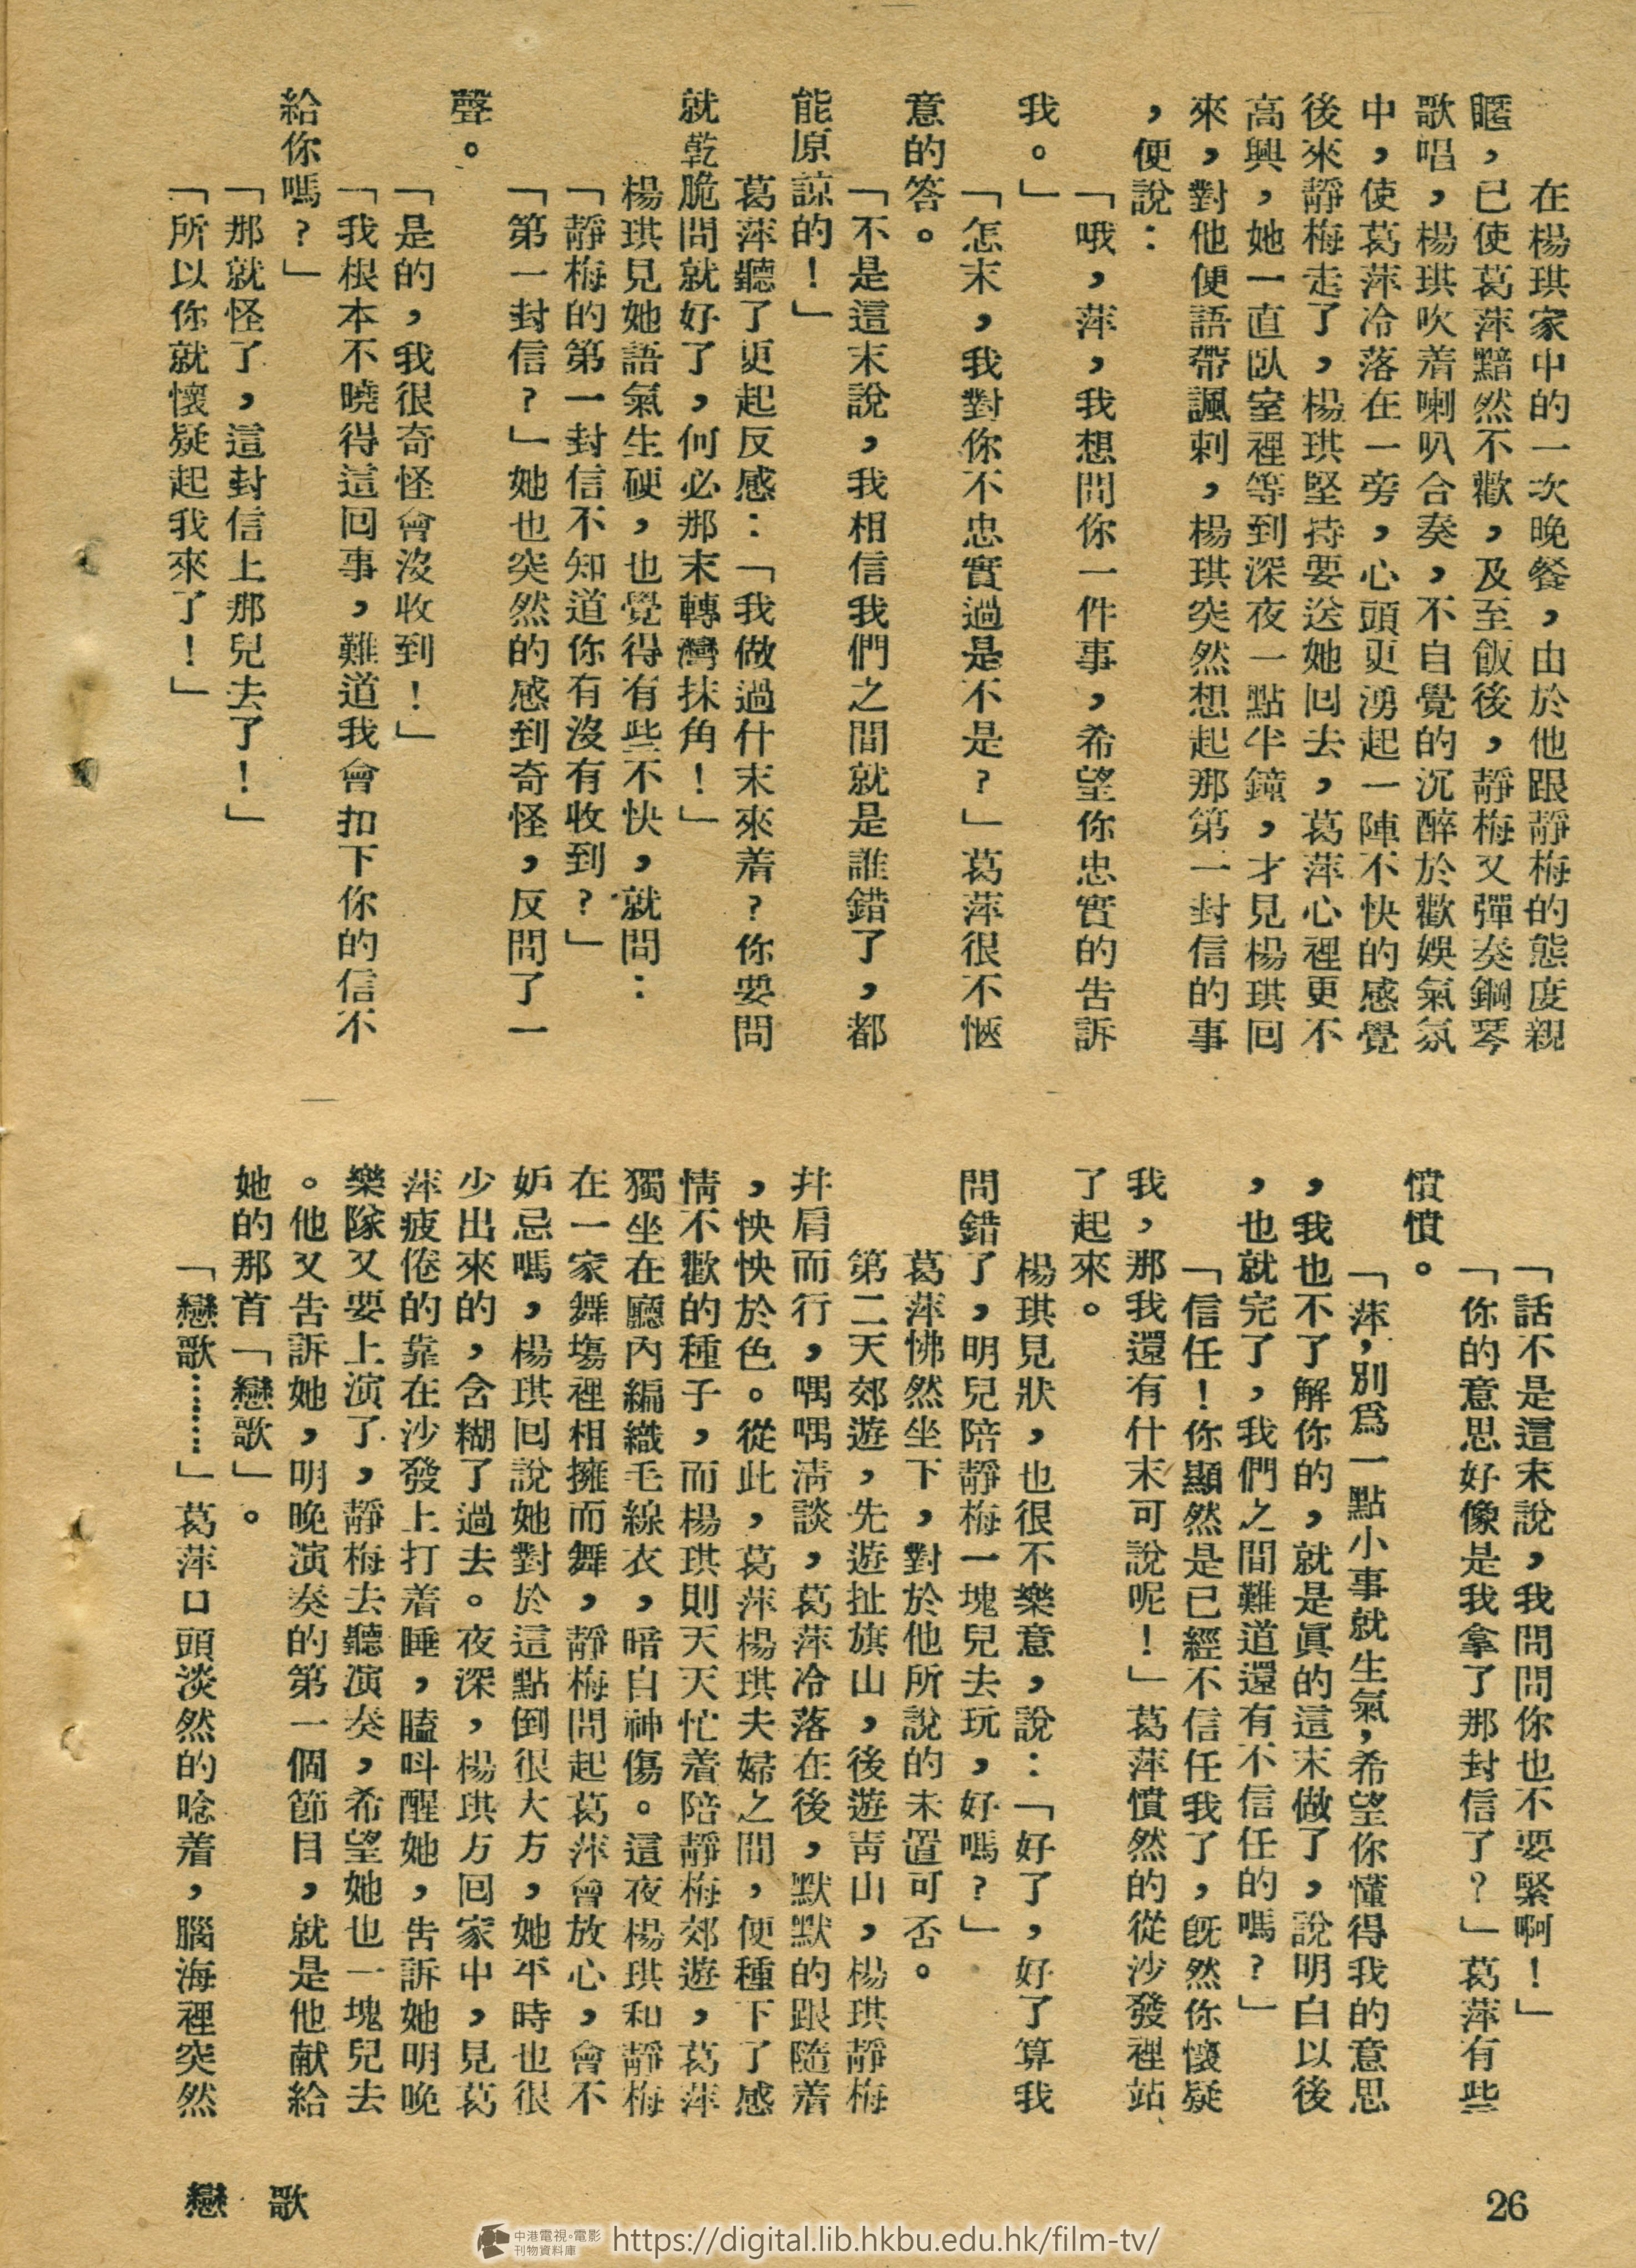 在楊琪家中的一次晚餐，由於他跟靜梅的態度親
暱，已使葛萍黯然不歡，及至飯後，靜梅又彈奏鋼琴
歌唱，楊琪吹着喇叭合奏，不自覺的沉醉於歡娛氣氛
中，使葛萍冷落在一旁，心頭更湧起一陣不快的感覺
後來靜梅走了，楊琪堅持要送她回去，葛萍心裡更不
高興，她一直臥室裡等到深夜一點半鐘，才見楊琪回
來，對他便語帶諷刺，楊琪突然想起那第一封信的事
，便說：
「哦，萍，我想問你一件事，希望你忠實的告訴
我。」
「怎末，我對你不忠實過是不是？」葛萍很不愜
意的答。
「不是這末說，我相信我們之間就是誰錯了，都
能原諒的！」
葛萍聽了更起反感：「我做過什末來着？你要問
就乾脆問就好了，何必那末轉灣抹角！」
楊琪見她語氣生硬，也覺得有些不快，就問：
「靜梅的第一封信不知道你有沒有收到？」
「第一封信？」她也突然的感到奇怪，反問了一
聲。
「是的，我很奇怪會沒收到！」
「我根本不曉得這回事，難道我會扣下你的信不
給你嗎？」
「那就怪了，這封信上那兒去了！」
「所以你就懷疑起我來了！」
「話不是這末說，我問問你也不要緊啊！」
「你的意思好像是我拿了那封信了？」葛萍有些
憤憤。
「萍，別爲一點小事就生氣，希望你懂得我的意思
，我也不了解你的，就是眞的這末做了，說明白以後
，也就完了，我們之間難道還有不信任的嗎？」
「信任！你顯然是已經不信任我了，既然你懷疑
我，那我還有什末可說呢！」葛萍憤然的從沙發裡站
了起來。
楊琪見狀，也很不樂意，說：「好了，好了算我
問錯了，明兒陪靜梅一塊兒去玩，好嗎？」
葛萍怫然坐下，對於他所說的未置可否。
第二天郊遊，先遊扯旗山，後遊靑山，楊琪靜梅
幷肩而行，喁喁淸談，葛萍冷落在後，默默的跟隨着
，怏怏於色。從此，葛萍楊琪夫婦之間，便種下了感
情不歡的種子，而楊琪則天天忙着陪靜梅郊遊，葛萍
獨坐在廳內編織毛線衣，暗自神傷。這夜楊琪和靜梅
在一家舞塲裡相擁而舞，靜梅問起葛萍會放心，會不
妒忌嗎，楊琪回說她對於這點倒很大方，她平時也很
少出來的，含糊了過去。夜深，楊琪方回家中，見葛
萍疲倦的靠在沙發上打着睡，瞌呌醒她，告訴她明晚
樂隊又要上演了，靜梅去聽演奏，希望她也一塊兒去
。他又告訴她，明晚演奏的第一個節目，就是他献給
她的那首「戀歌」。
「戀歌………」葛萍口頭淡然的唸着，腦海裡突然
戀歌
26
中港電視·電影
刊物資料庫
https://digital.lib.hkbu.edu.hk/film-tv/